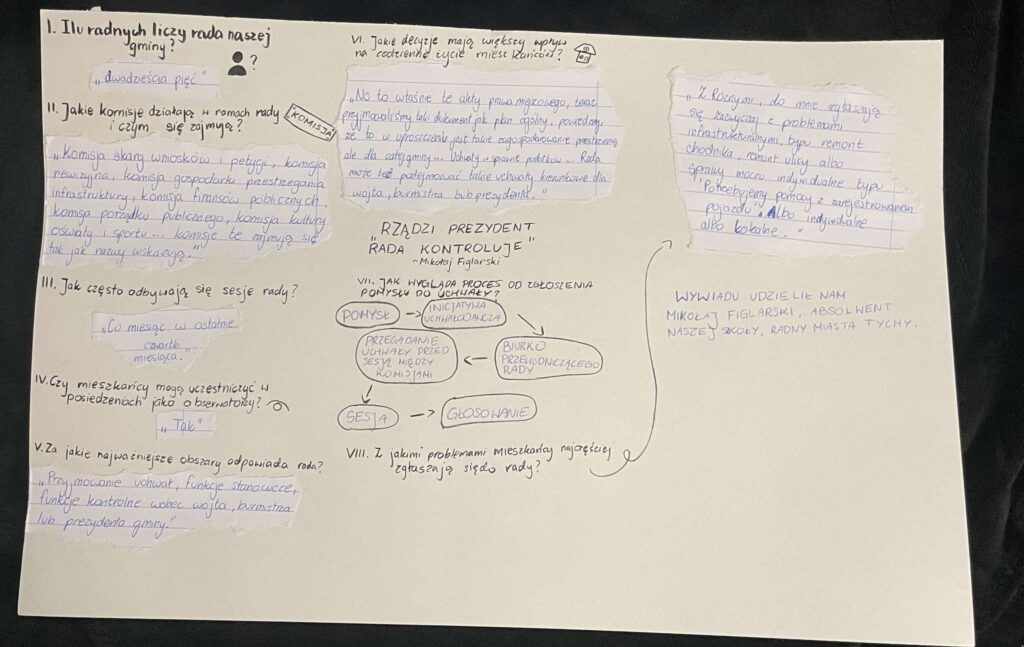 I. Ilu radnych liczy rada naszej
gminy?
?
„dwadzieścia pięć"
II. Jakie komisje działają w ramach rady
i czym się zajmują?
KOMISJA
„Komisja skarg wniosków i petycji, komisja
rewizyjna, komisja gospodarki przestrzegania
infrastruktury, komisja finansów publicznych,
komisja porządku publicznego, komisja kultury
oswiaty i sportu... komisje te zajmują się
tak jak nazwy wskazują."
III. Jak często odbywają się sesje rady?
„Co miesiąc w ostatnie
czwartki
miesiąca."
IV. Czy mieszkańcy mogą uczestniczyć w
posiedzeniach jako obserwatorzy?
„Tak"
V. Za jakie najważniejsze obszary odpowiada rada?
„Przyjmowanie uchwał, funkcje stanowcze,
funkcje kontrolne wobec wojta, burmistrza
lub prezydenta gminy."
VI. Jakie decyzje mają większy wpływ
na codzienne życie mieszkańców?
„No to właśnie te akty prawa miejscowego, teraz
przyjmowaliśmy taki dokument jak plan ogólny, powiedzmy
że to w uproszczeniu jest takie zagospodarowanie przestrzenne
ale dla całej gminy... Uchwały w sprawie podatków... Rada
może też podejmować takie uchwały kierunkowe dla
wojta, burmistrza bub prezydenta."
„RZĄDZI PREZYDENT
RADA KONTROLUJE"
~Mikołaj Figlarski
VII. JAK WYGLĄDA PROCES OD ZGŁOSZENIA
POMYSŁU DO UCHWAŁY?
POMYSŁ
INICJATYWA
UCHWAŁODAWCZA
BIURKO
PRZEWODNICZĄCEGO
RADY
PRZEGADANIE
UCHWAŁY PRZED
SESJĄ MIĘDZY
KOMISJAMI
SESJA
GŁOSOWANIE
VIII. Z jakimi problemami mieszkańcy najczęściej
zgłaszają się do rady?
„Z Różnymi, do mnie zgłaszają
się zazwyczaj z problemami
infrastrukturalnymi, typu remont
chodnika, remont ulicy albo
sprawy mocno indywidualne typu
'Potrzebujemy pomocy z zarejestrowaniem
pojazdu'. Albo indywidualne
albo lokalne."
WYWIADU UDZIELIŁ NAM
MIKOŁAJ FIGLARSKI, ABSOLWENT
NASZEJ SZKOŁY, RADNY MIASTA TYCHY.